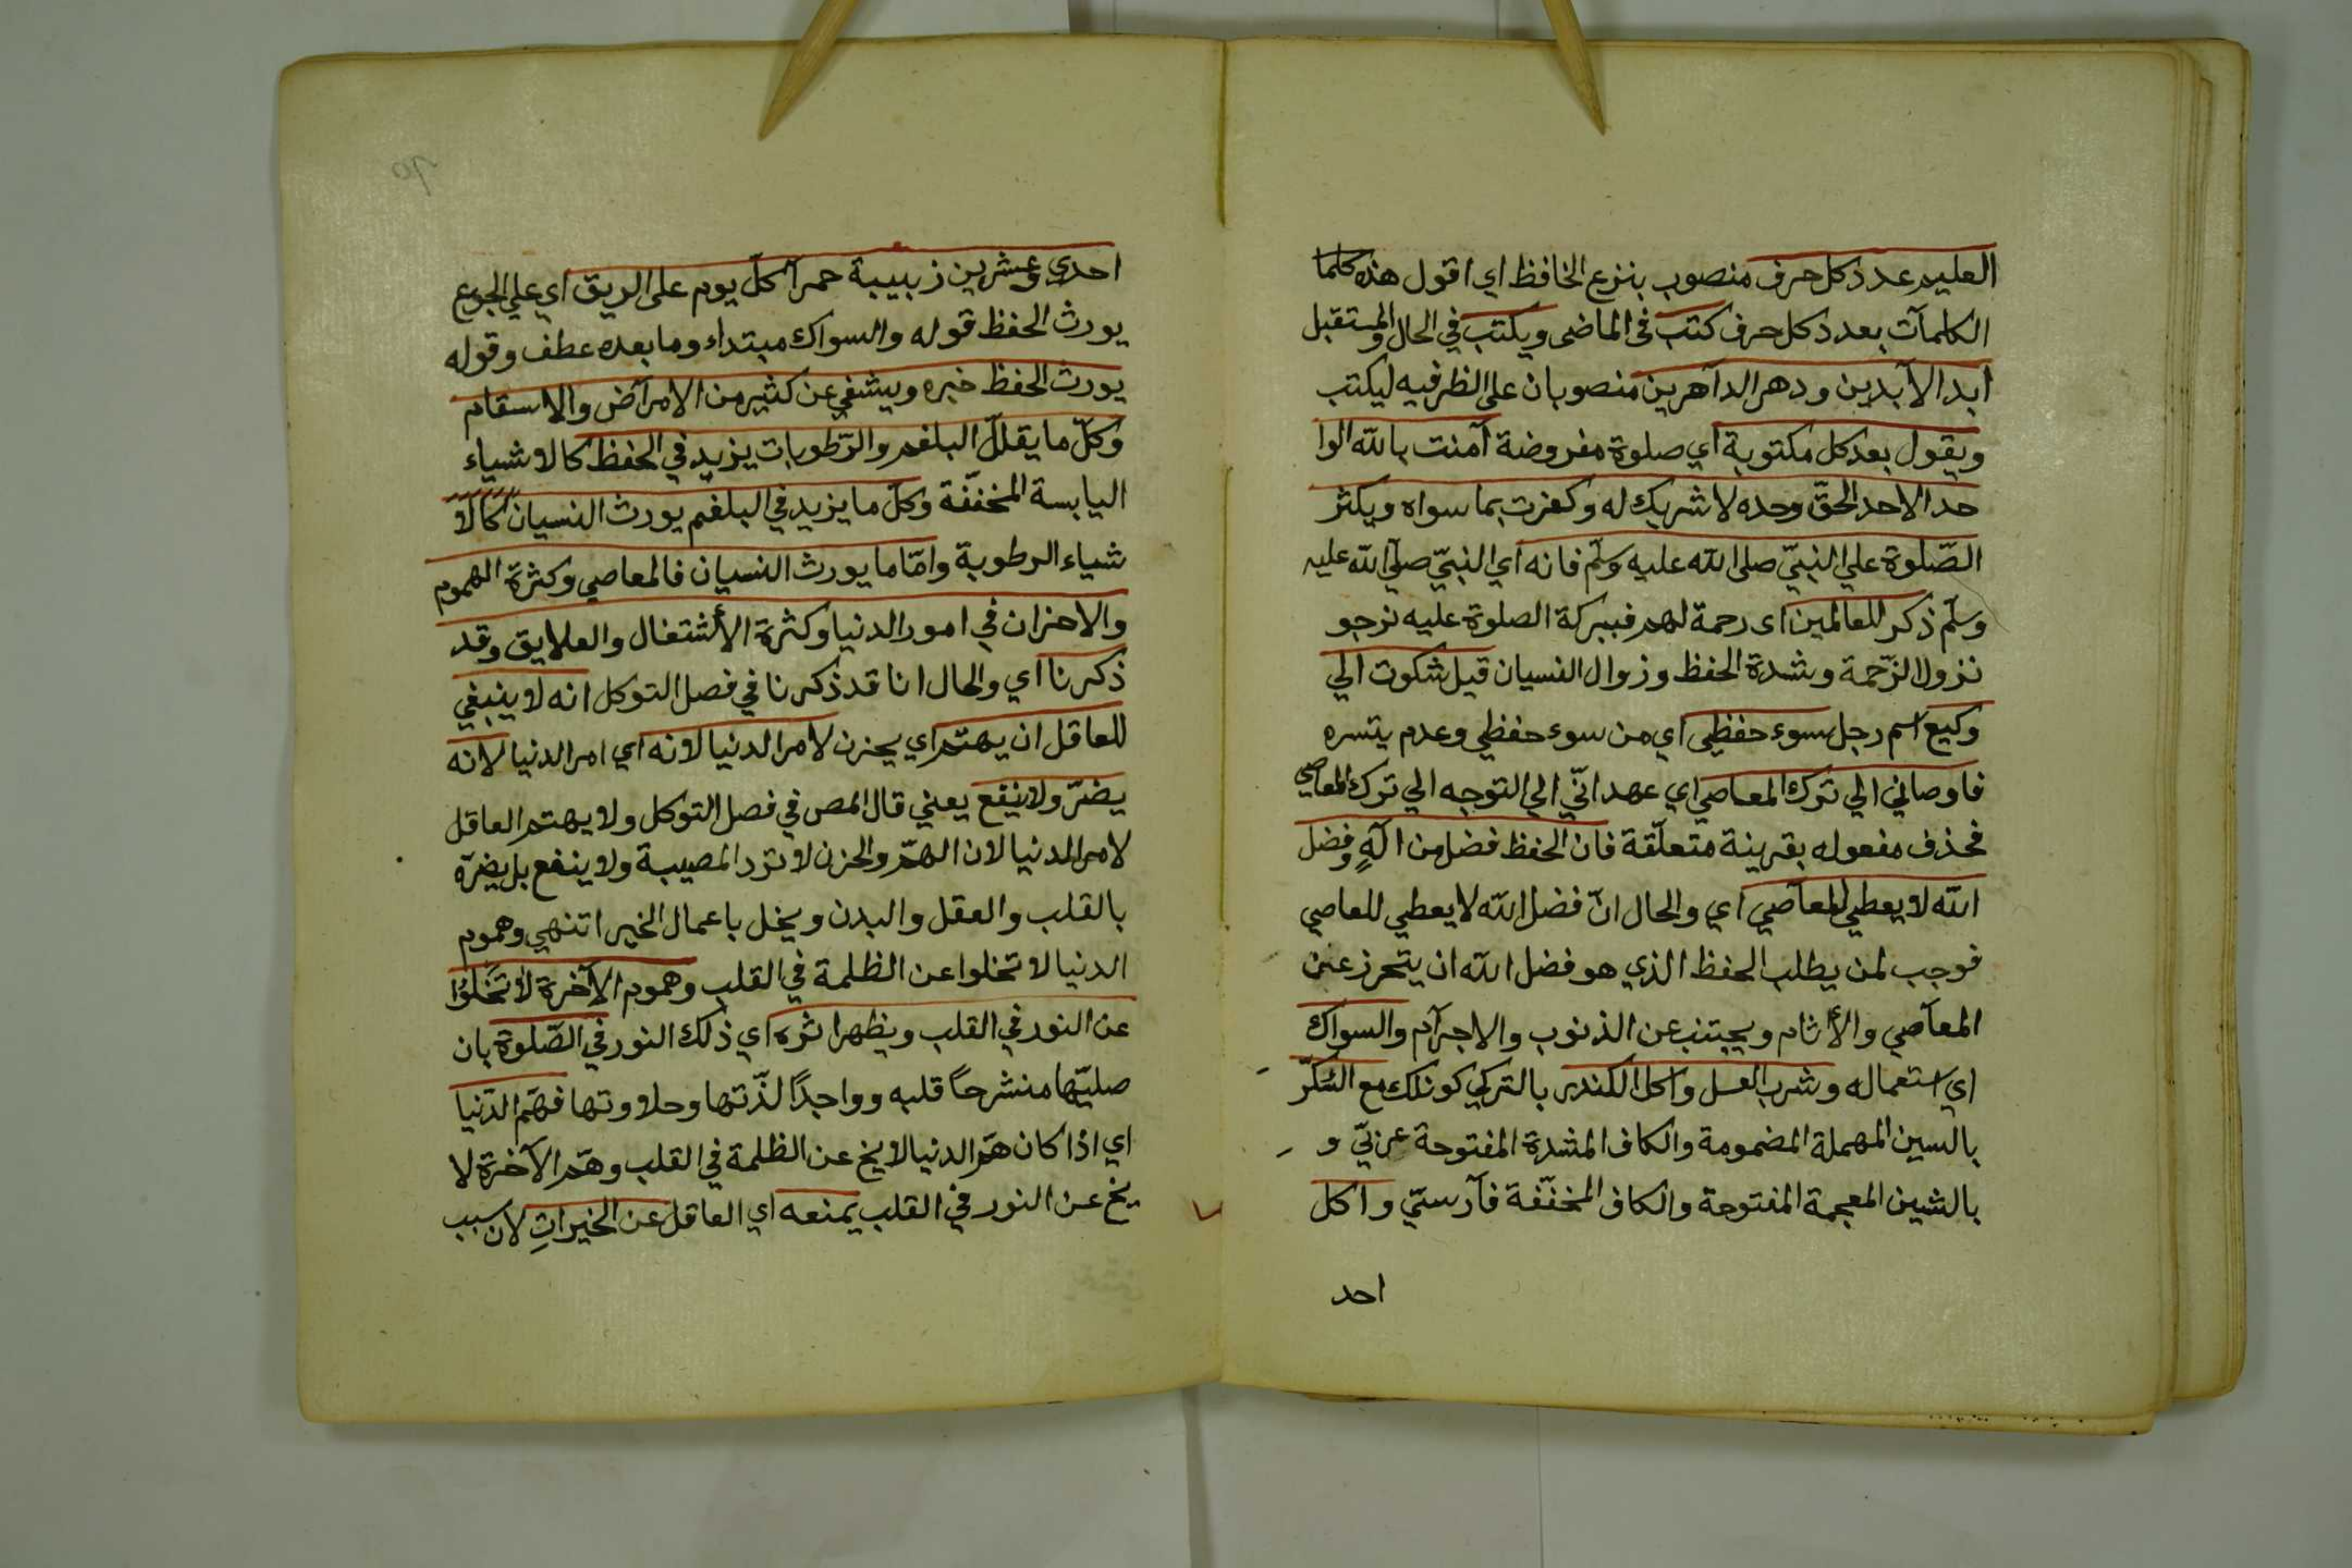 العليم عدد كل حرف منصوب بنزع الخافظ اي اقول هذه كلما
الكلمآت بعدد كل حرف كتب فى الماضى ويكتب في الحال والمستقبل
ابد الآبدين ودهر الداهرين منصوبان على الظرفيه ليكتب
ويقول بعد كل مكتوبة اي صلوة مفروضة آمنت بالله الوا
حد الاحد الحقّ وحده لا شريك له وكفرت بما سواه ويكثر
الصّلوة علي النبيّ صلى الله عليه وسلّم فانه اي النبيّ صلّي الله عليه
وسلّم ذكر للعالمين اى رحمة لهم فببركة الصلوة عليه نرجو
نزول الرّحمة وشدة الحفظ وزوال النسيان قيل شكوت الي
وكيع اسم رجل سوء حفظي اي من سوء حفظي وعدم يتسره
فاوصاني الي ترك المعاصي اي عهد انّي الي التوجه الي ترك المعاصي
فحذف مفعوله بقرينة متعلّقة فان الحفظ فضل من الٓهٍ وفضل
الله لا يعطي للمعآصي اي والحال انّ فضل الله لا يعطي للعاصي
فوجب لمن يطلب الحفظ الذي هو فضل الله ان يتحرز عن
المعآصي والأثام ويجتنب عن الذنوب والاجرآم والسواك
اي استعماله وشرب العسل واكل الكندر بالتركي كونلك مع السّكّر
بالسين المهملة المضمومة والكاف المشدة المفتوحة عربّي و
بالشين المعجمة المفتوحة والكاف المخفّفة فآرستّي واكل
احد
احدي وعشرين زبيبة حمرآ كلّ يوم على الريق اي علي الجوع
يورث الحفظ قوله والسواك مبتداء وما بعده عطف وقوله
يورث الحفظ خبره ويشفي عن كثير من الامرآض والاسقام
وكلّ ما يقللّ البلغم والرّطوبات يزيد في الحفظ كالاشياء
اليابسة المخفّفة وكلّ ما يزيد في البلغم يورث النسيان كَالَا
شياء الرطوبة وامّا ما يورث النسيان فالمعاصي وكثرة الهموم
والاحزان في امور الدنيا وكثرة الأشتغال والعلايق وقد
ذكرنا اي والحال انا قد ذكرنا في فصل التوكل انه لا ينبغي
للعاقل ان يهتم اي يحزن لامر الدنيا لانه اي امر الدنيا لانه
يضرّ ولا ينفع يعني قال المص في فصل التوكل ولا يهتم العاقل
لامر الدنيا لان الهمّ والحزن لا ترد المصيبة ولا ينفع بل يضرّه
بالقلب والعقل والبدن ويخل باعمال الخير انتهي وهموم
الدنيا لا تخلوا عن الظلمة في القلب وهموم الآخرة لا تَخلُوا
عن النور في القلب ويظهر اثره اي ذلك النور في الصّلوة بان
صليّها منشرحاً قلبه وواجداً لذّتها وحلاوتها فهّم الدّنيا
اي اذا كان همّ الدنيا لا يخ عن الظلمة في القلب وهمّ الآخرة لا
يخ عن النور في القلب يمنعه اي العاقل عن الخيراتِ لان سبب